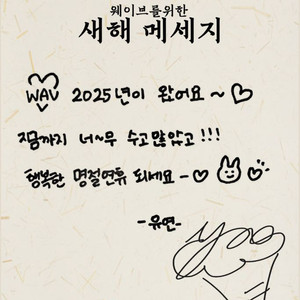 웨이브를위한
새해 메세지
WAV 2025년이 왔어요~♡
지금까지 너~무 수고많았고!!!
행복한 명절연휴 되세요-♡
-유연-